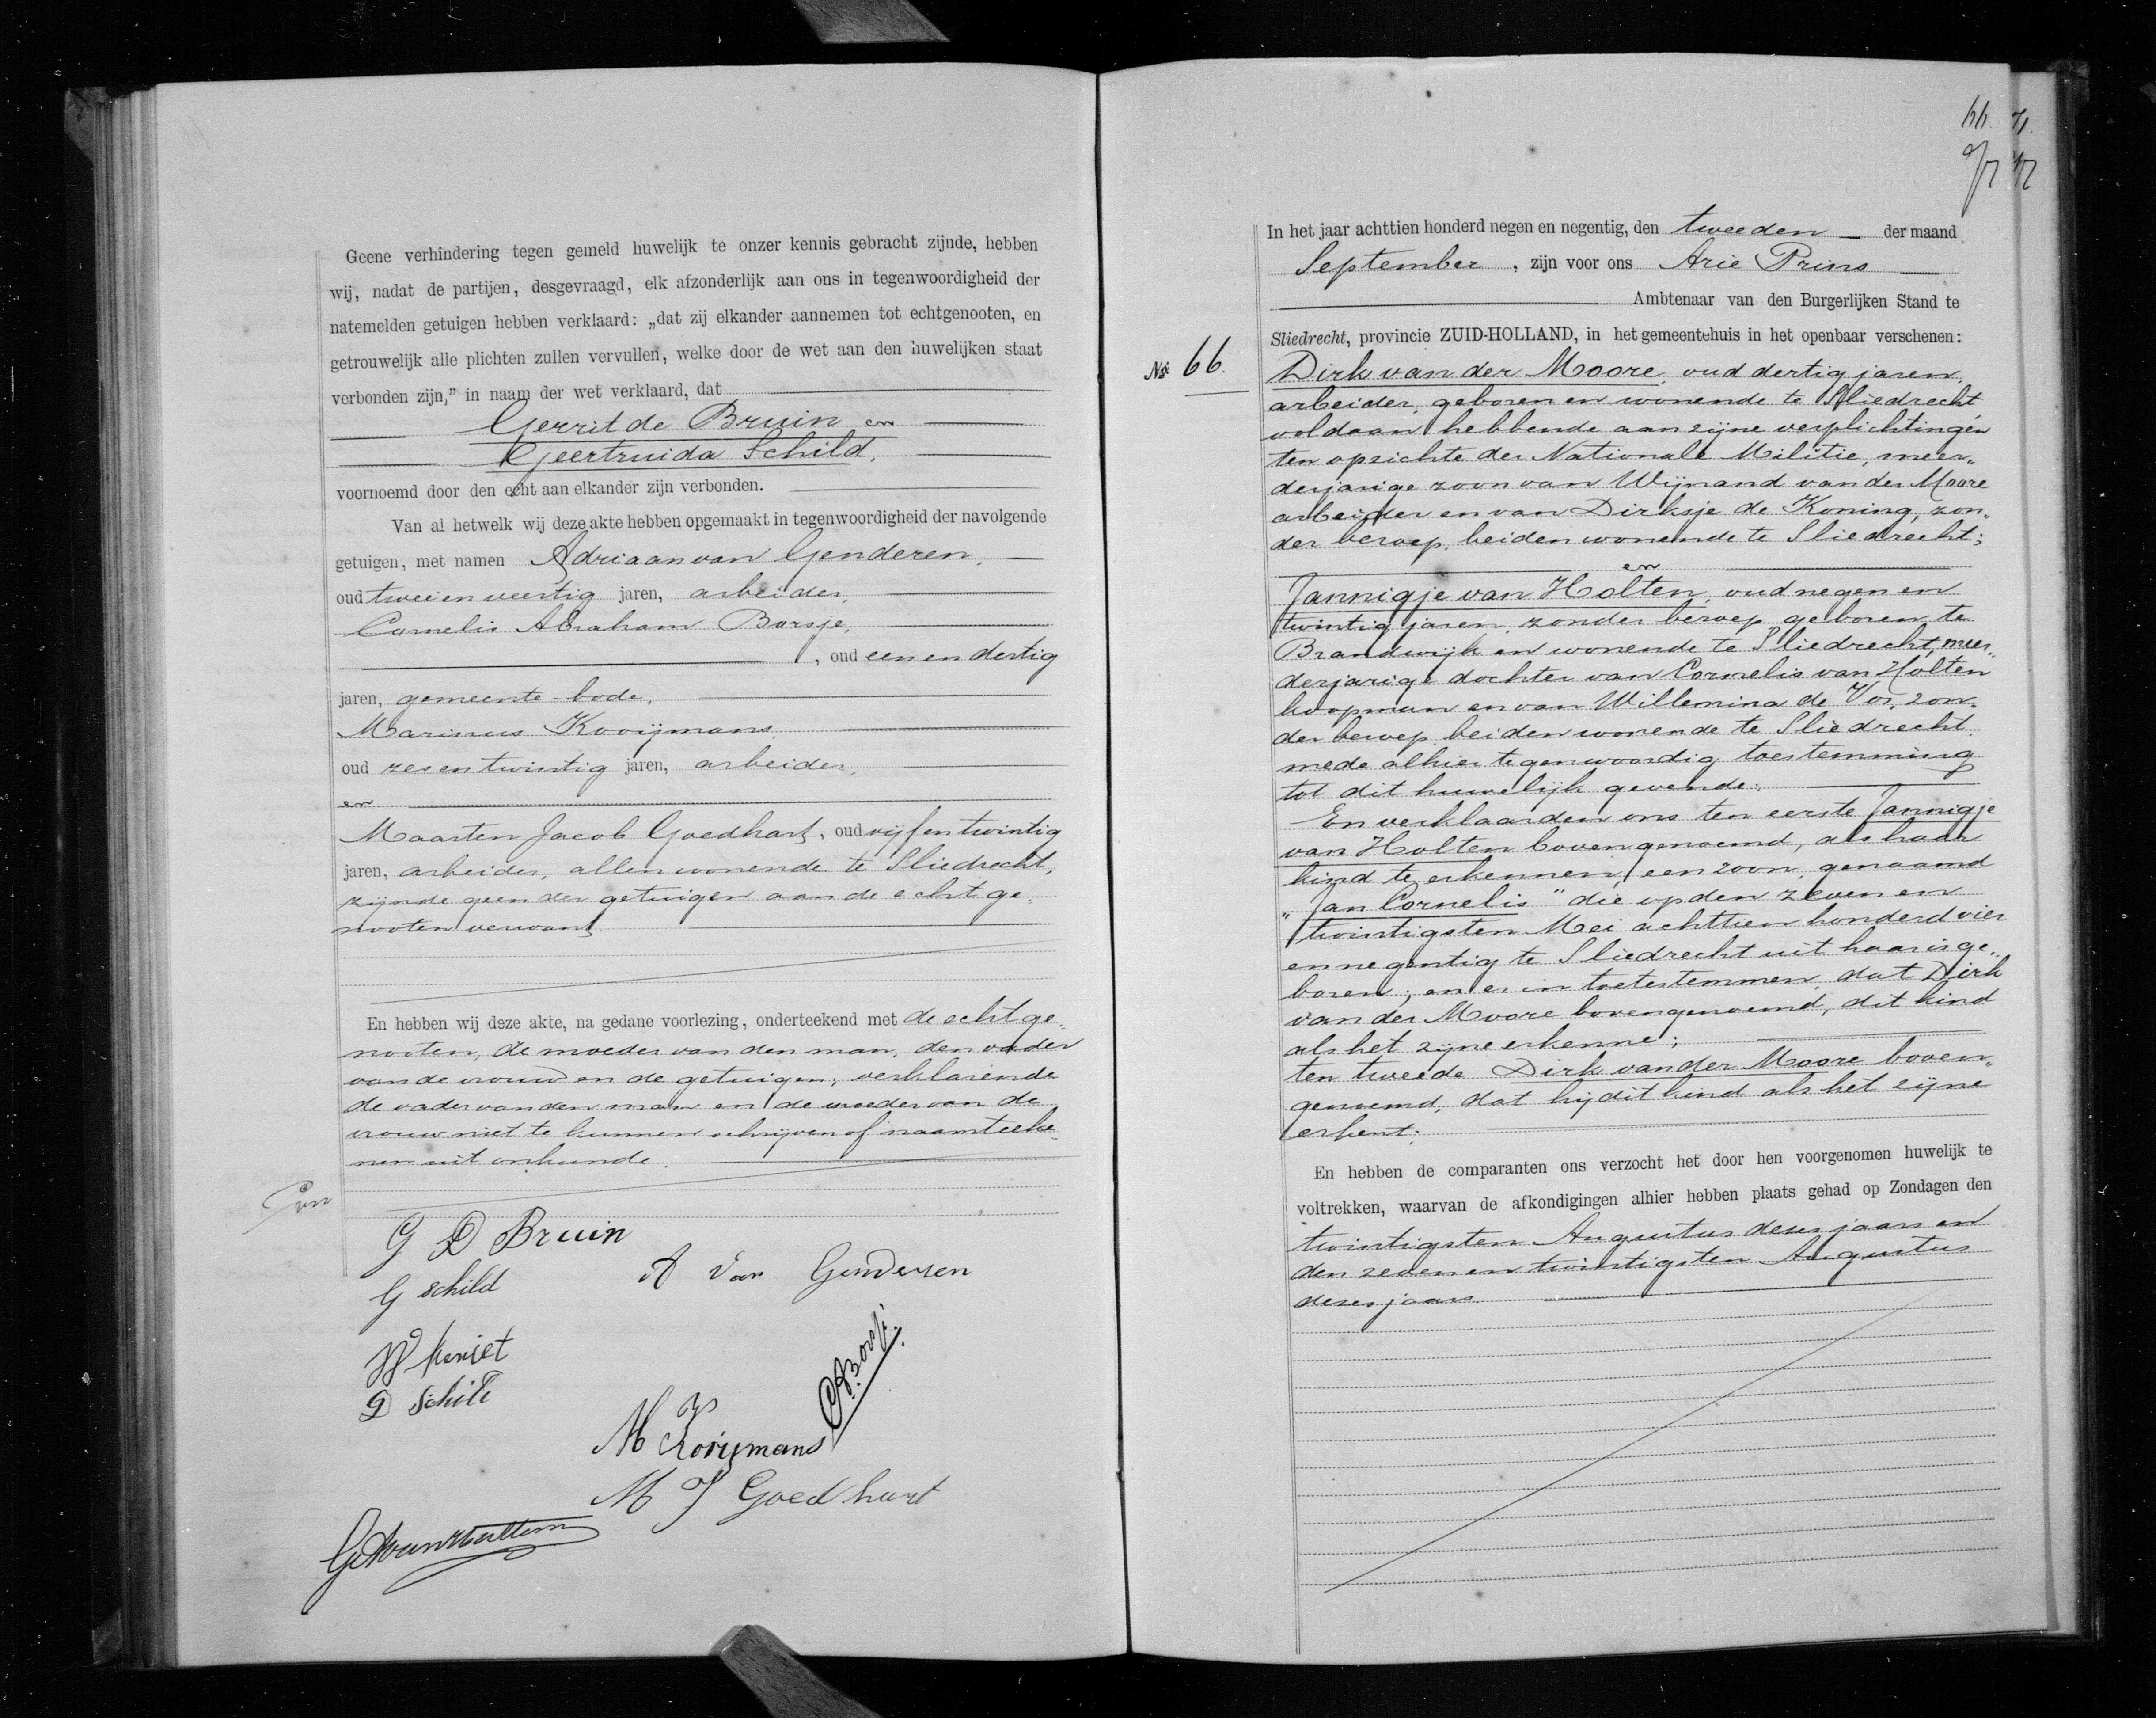 Geene verhindering tegen gemeld huwelijk te onzer kennis gebracht zijnde, hebben
wij, nadat de partijen, desgevraagd, elk afzonderlijk aan ons in tegenwoordigheid der
natemelden getuigen hebben verklaard: „dat zij elkander aannemen tot echtgenooten, en
getrouwelijk alle plichten zullen vervullen, welke door de wet aan den huwelijken staat
verbonden zijn,” in naam der wet verklaard, dat
Gerrit de Bruin en
Geertruida Schild,
voornoemd door den echt aan elkander zijn verbonden.
Van al hetwelk wij deze akte hebben opgemaakt in tegenwoordigheid der navolgende
getuigen, met namen Adriaan van Genderen,
oud tweeenveertig jaren, arbeider,
Cornelis Abraham Borsje,
, oud eenendertig
jaren, gemeente-bode,
Marinus Kooijmans,
oud zesentwintig jaren, arbeider,
en
Maarten Jacob Goedhart, oud vijfentwintig
jaren, arbeider, allen wonende te Sliedrecht,
zijnde geen der getuigen aan de echtge-
nooten verwant.
En hebben wij deze akte, na gedane voorlezing, onderteekend met de echtge-
nooten, de moeder van den man, den vader
van de vrouw en de getuigen; verklarende
de vader van den man en de moeder van de
vrouw niet te kunnen schrijven of naamteeke-
nen uit onkunde.
G D Bruin
A van Genderen
G Schild
CABorsje.
M Kooijmans
M J Goedhart
66. 71.
In het jaar achttien honderd negen en negentig, den tweeden der maand
September, zijn voor ons Arie Prins
Ambtenaar van den Burgerlijken Stand te
Sliedrecht, provincie ZUID-HOLLAND, in het gemeentehuis in het openbaar verschenen:
No. 66.
Dirk van der Moore, oud dertig jaren,
arbeider, geboren en wonende te Sliedrecht,
voldaan hebbende aan zijne verplichtingen
ten opzichte der Nationale Militie, meer-
derjarige zoon van Wijnand van der Moore
arbeider en van Dirksje de Koning, zon-
der beroep, beiden wonende te Sliedrecht;
en
Jannigje van Holten, oud negen en
twintig jaren, zonder beroep, geboren te
Brandwijk en wonende te Sliedrecht, meer-
derjarige dochter van Cornelis van Holten
koopman en van Willemina de Vos, zon-
der beroep, beiden wonende te Sliedrecht
mede alhier tegenwoordig toestemming
tot dit huwelijk gevende:
En verklaarden ons ten eerste Jannigje
van Holten bovengenoemd, als haar
kind te erkennen, een zoon, genaamd
"Jan Cornelis" die op den zeven en
twintigsten Mei achttien honderd vier
en negentig te Sliedrecht uit haar is ge-
boren; en er in toetestemmen, dat Dirk
van der Moore bovengenoemd, dit kind
als het zijne erkenne;
ten tweede Dirk van der Moore boven-
genoemd, dat hij dit kind als het zijne
erkent:
En hebben de comparanten ons verzocht het door hen voorgenomen huwelijk te
voltrekken, waarvan de afkondigingen alhier hebben plaats gehad op Zondagen den
twintigsten Augustus dezes jaars en
den zevenentwintigsten Augustus
dezes jaars.